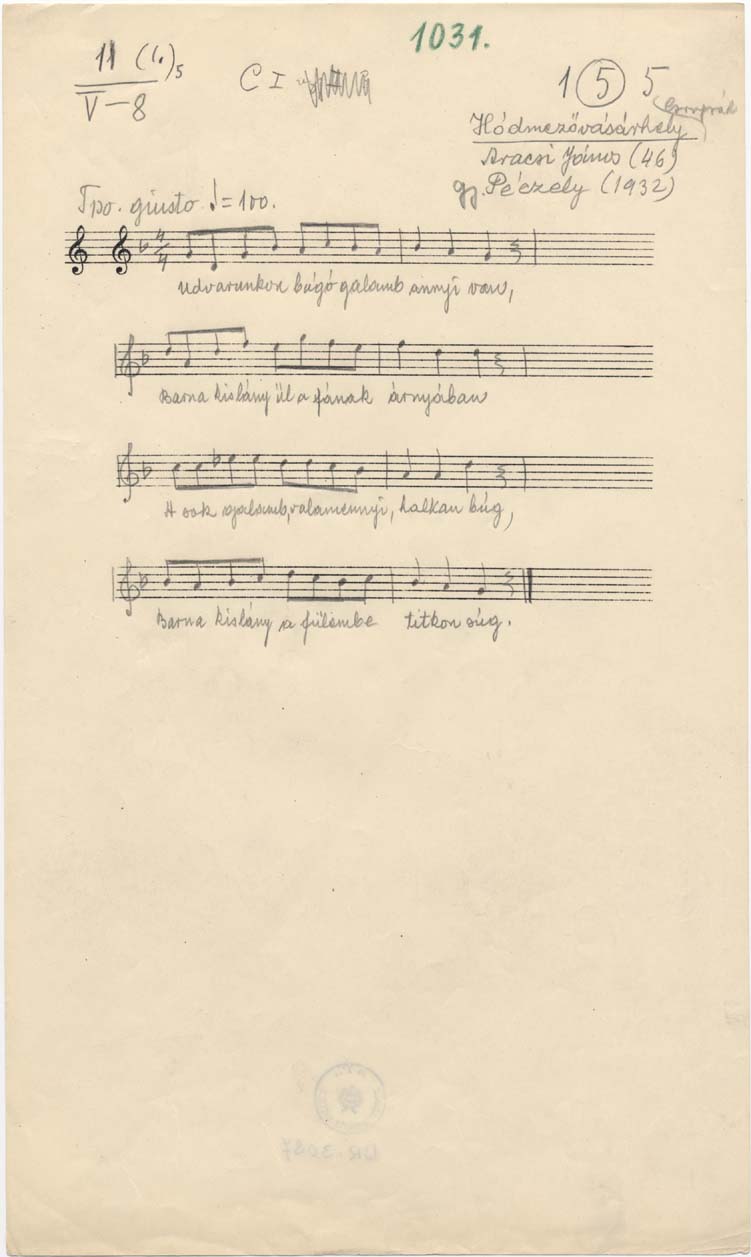 1031.
11 (1.)5
V-8
C I
1 5 5
Hódmezővásárhely
Aracsi János (46)
gy. Péczely (1932)
Tpo. giusto. ♩=100.
4/4
Udvarunkon búgó galamb annyi van,
Barna kislány ül a fának árnyában
A sok galamb, valamennyi, halkan búg,
Barna kislány a fülembe titkon súg.